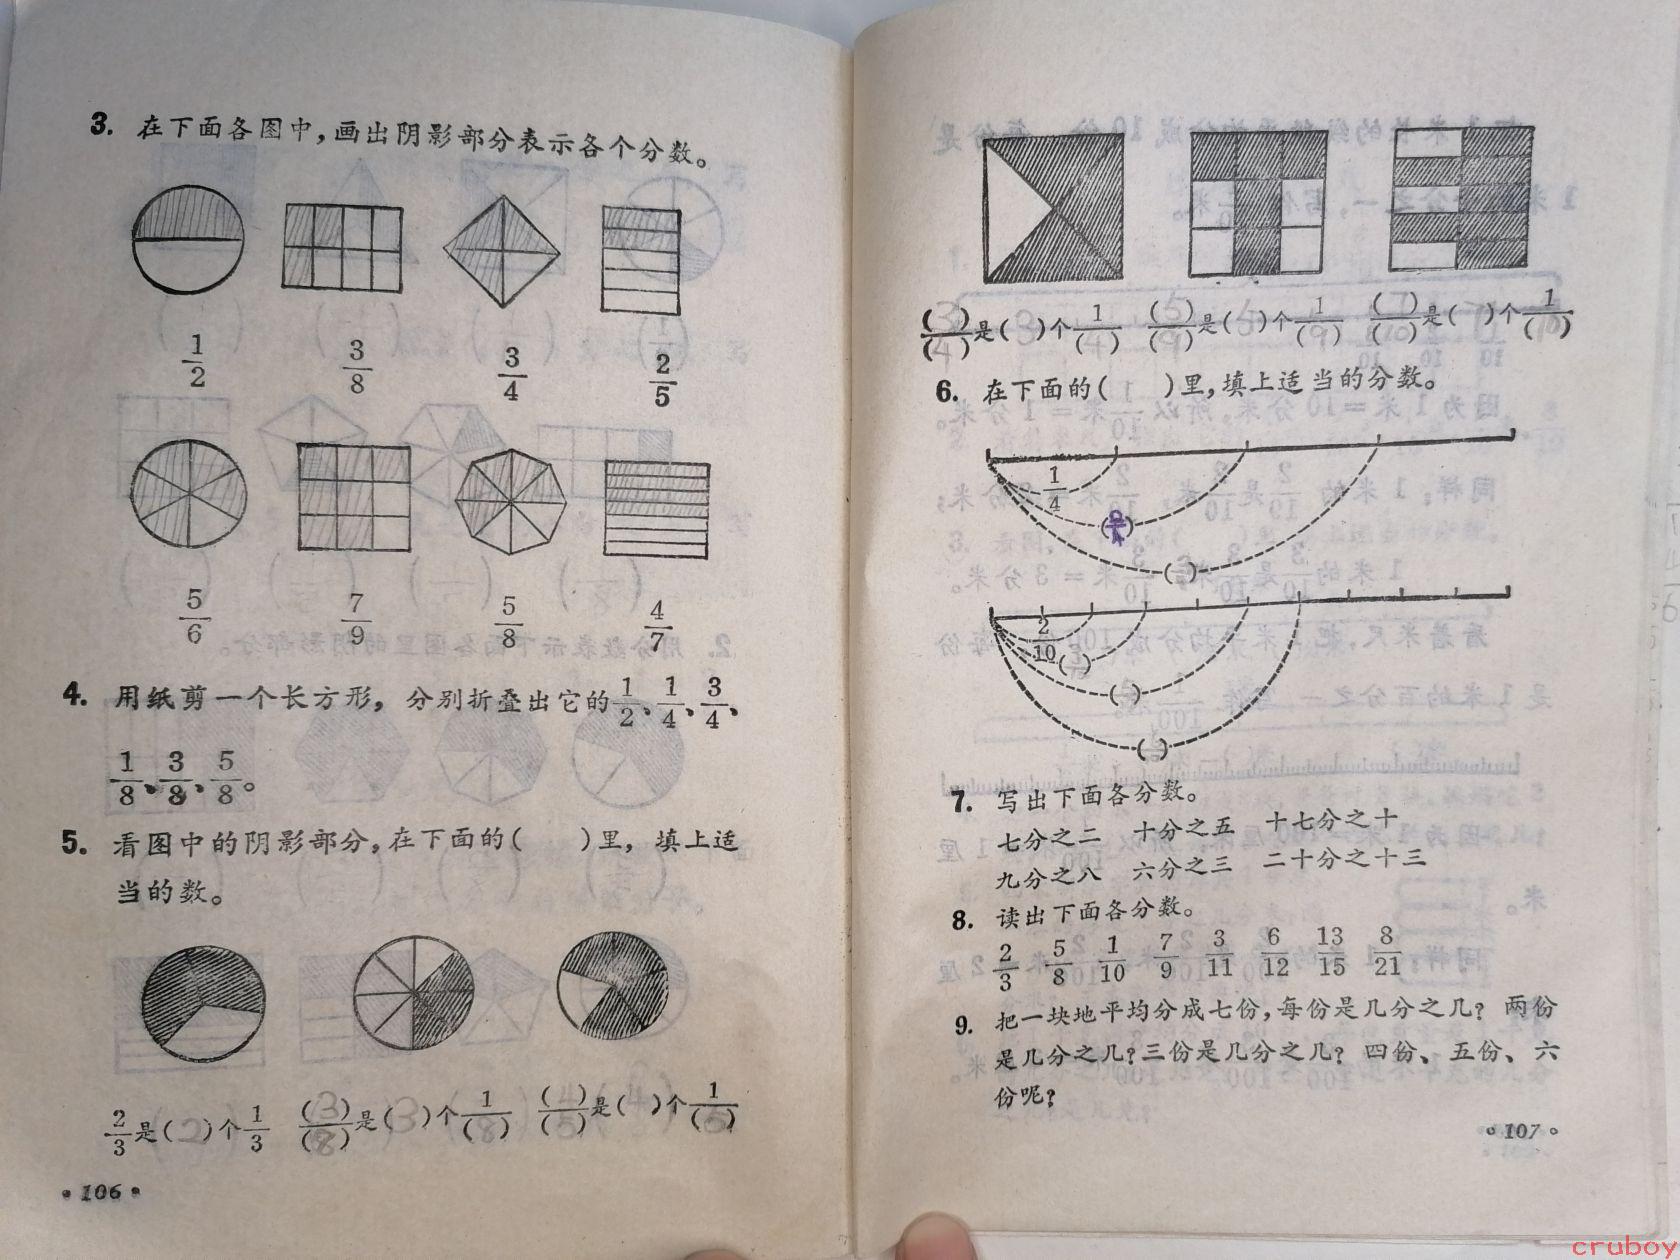 3. 在下面各图中，画出阴影部分表示各个分数。
1/2 3/8 3/4 2/5
5/6 7/9 5/8 4/7
4. 用纸剪一个长方形，分别折叠出它的1/2、1/4、3/4、
1/8、3/8、5/8。
5. 看图中的阴影部分，在下面的( )里，填上适
当的数。
2/3是(2)个1/3 (3)/(8)是(3)个1/(8) (4)/(5)是(4)个1/(5)
•106•
(3)/(4)是(3)个1/(4) (5)/(9)是(5)个1/(9) (7)/(10)是( )个1/(10)
6. 在下面的( )里，填上适当的分数。
1/4
2/10
7. 写出下面各分数。
七分之二 十分之五 十七分之十
九分之八 六分之三 二十分之十三
8. 读出下面各分数。
2/3 5/8 1/10 7/9 3/11 6/12 13/15 8/21
9. 把一块地平均分成七份，每份是几分之几？两份
是几分之几？三份是几分之几？四份、五份、六
份呢？
•107•
cruboy